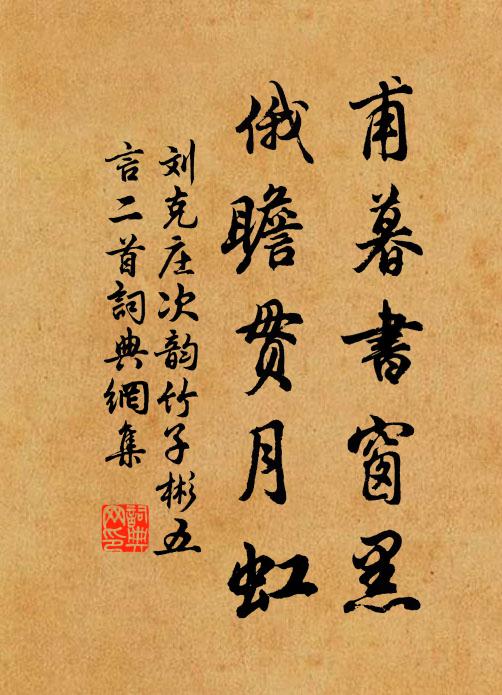 甫暮書窗黑
俄瞻贯月虹
刘克庄次韵竹子彬五
言二首詞典網集
詞典网印